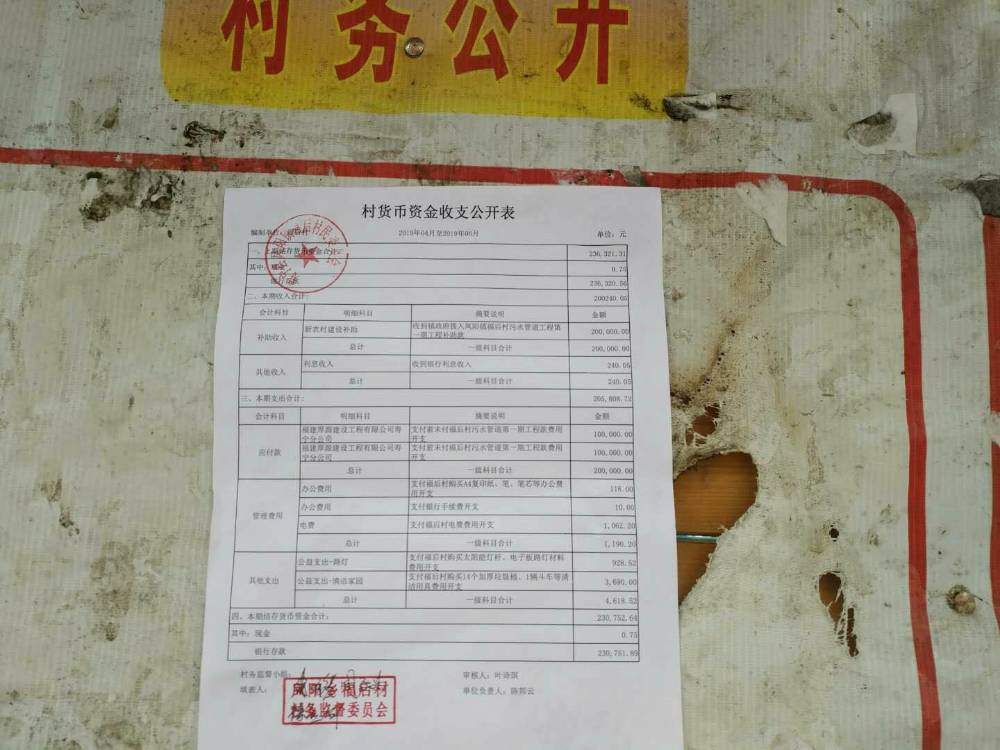 村务公开
村货币资金收支公开表
2019年04月至2019年06月 单位：元
236,321.31
其中： 0.75
银行存款 236,320.56
二、本期收入合计： 200240.05
会计科目 明细科目 摘要说明 金额
补助收入 新农村建设补助 收到镇政府拨入凤阳镇福后村污水管道工程第一期工程补助款 200,000.00
总计 一级科目合计 200,000.00
其他收入 利息收入 收到银行利息收入 240.05
总计 一级科目合计 240.05
三、本期支出合计： 205,808.72
会计科目 明细科目 摘要说明 金额
应付款 福建厚源建设工程有限公司寿宁分公司 支付前未付福后村污水管道第一期工程款费用开支 100,000.00
福建厚源建设工程有限公司寿宁分公司 支付前未付福后村污水管道第一期工程款费用开支 100,000.00
总计 一级科目合计 200,000.00
管理费用 办公费用 支付福后村购买A4复印纸、笔、笔芯等办公费用开支 118.00
办公费用 支付银行手续费开支 10.00
电费 支付福后村电费费用开支 1,062.20
总计 一级科目合计 1,190.20
其他支出 公益支出-路灯 支付福后村购买太阳能灯杆、电子板路灯材料费用开支 928.52
公益支出-清洁家园 支付福后村购买14个加厚垃圾桶、1辆斗车等清洁用具费用开支 3,690.00
总计 一级科目合计 4,618.52
四、本期结存货币资金合计： 230,752.64
其中：现金 0.75
银行存款 230,751.89
村务监督小组： 审核人：叶诗琪
填表人： 单位负责人：陈邦云
凤阳乡福后村
村务监督委员会